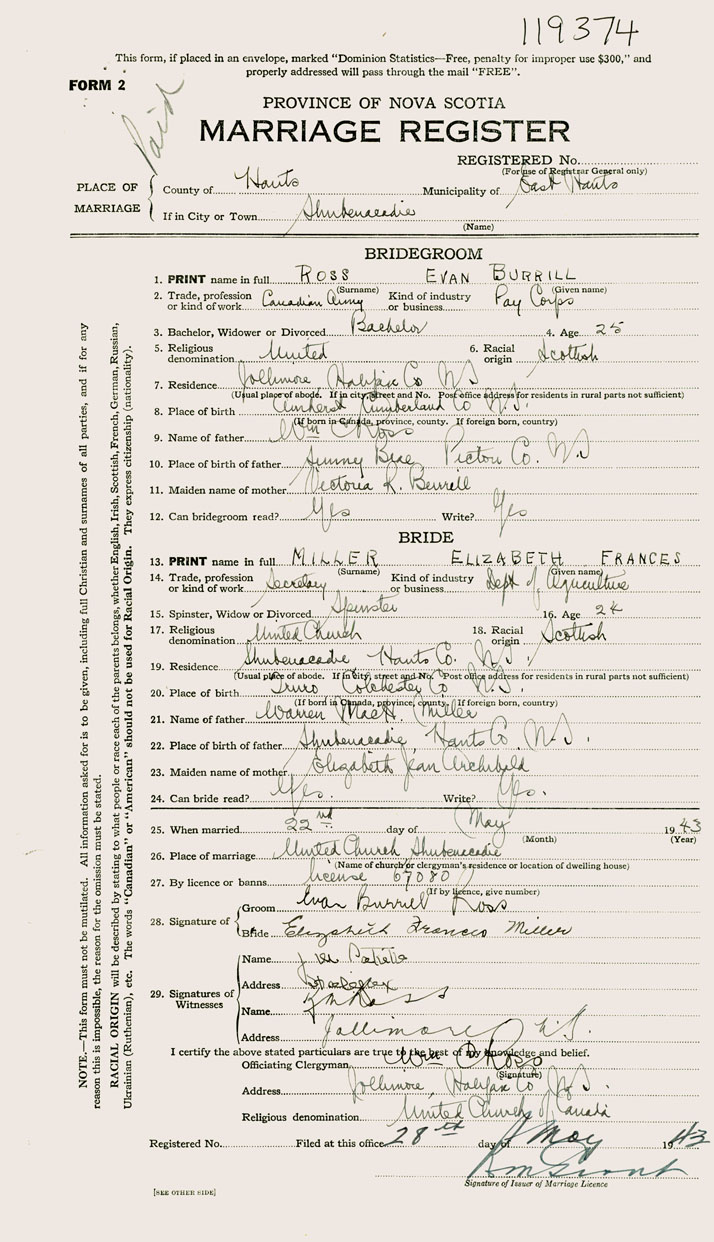 119374
This form, if placed in an envelope, marked "Dominion Statistics—Free, penalty for improper use $300," and
properly addressed will pass through the mail "FREE".
FORM 2
Paid
PROVINCE OF NOVA SCOTIA
MARRIAGE REGISTER
REGISTERED No.
(For use of Registrar General only)
PLACE OF MARRIAGE
County of Hants Municipality of East Hants
If in City or Town Shubenacadie
(Name)
BRIDEGROOM
1. PRINT name in full ROSS EVAN BURRILL
(Surname) (Given name)
2. Trade, profession or kind of work Canadian Army Kind of industry or business Pay Corps
3. Bachelor, Widower or Divorced Bachelor 4. Age 25
5. Religious denomination United 6. Racial origin Scottish
7. Residence Jollimore, Halifax Co N.S
(Usual place of abode. If in city, street and No. Post office address for residents in rural parts not sufficient)
8. Place of birth Amherst Cumberland Co N.S.
(If born in Canada, province, county. If foreign born, country)
9. Name of father Wm C Ross
10. Place of birth of father Sunny Brae, Pictou Co. N.S
11. Maiden name of mother Victoria R. Burrill
12. Can bridegroom read? Yes Write? Yes
BRIDE
13. PRINT name in full MILLER ELIZABETH FRANCES
(Surname) (Given name)
14. Trade, profession or kind of work Secretary Kind of industry or business Dept of Agriculture
15. Spinster, Widow or Divorced Spinster 16. Age 24
17. Religious denomination United Church 18. Racial origin Scottish
19. Residence Shubenacadie Hants Co. N.S.
(Usual place of abode. If in city, street and No. Post office address for residents in rural parts not sufficient)
20. Place of birth Truro Colchester Co N.S.
(If born in Canada, province, county. If foreign born, country)
21. Name of father Warren MacH. Miller
22. Place of birth of father Shubenacadie, Hants Co. N.S.
23. Maiden name of mother Elizabeth Jean Archibald
24. Can bride read? Yes. Write? Yes.
25. When married 22nd day of May 1943
(Month) (Year)
26. Place of marriage United Church Shubenacadie
(Name of church or clergyman's residence or location of dwelling house)
27. By licence or banns license 67080
(If by licence, give number)
28. Signature of
Groom Evan Burrill Ross
Bride Elizabeth Frances Miller
29. Signatures of Witnesses
Name
Address Halifax
Name
Address Jollimore N.S.
I certify the above stated particulars are true to the best of my knowledge and belief.
Officiating Clergyman Wm C Ross
(Signature)
Address Jollimore, Halifax Co N.S.
Religious denomination United Church of Canada
Registered No. Filed at this office 28th day of May 1943
Signature of Issuer of Marriage Licence
[SEE OTHER SIDE]
NOTE.—This form must not be mutilated. All information asked for is to be given, including full Christian and surnames of all parties, and if for any
reason this is impossible, the reason for the omission must be stated.
RACIAL ORIGIN will be described by stating to what people or race each of the parents belongs, whether English, Irish, Scottish, French, German, Russian,
Ukrainian (Ruthenian), etc. The words "Canadian" or "American" should not be used for Racial Origin. They express citizenship (nationality).